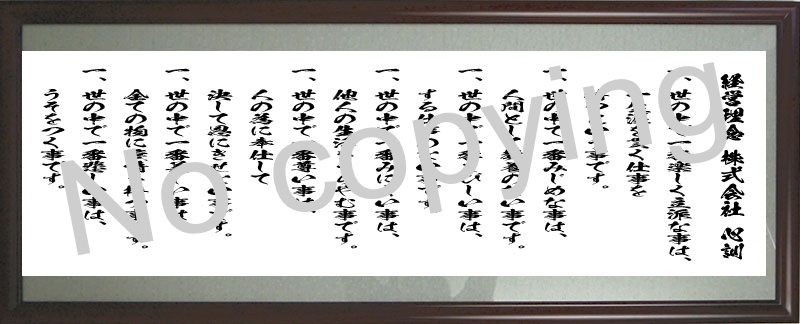 経営理念 株式会社 心訓
一、世の中で一番楽しく立派な事は、
一生涯を貫く仕事を
という事です。
一、世の中で一番みじめな事は、
人間として教養のない事です。
一、世の中で一番さびしい事は、
する仕事のない事です。
一、世の中で一番みにくい事は、
他人の生活をうらやむ事です。
一、世の中で一番尊い事は、
人の為に奉仕して
決して恩にきせない事です。
一、世の中で一番美しい事は、
全ての物に愛情を持つ事です。
一、世の中で一番い事は、
うそをつく事です。
No copying